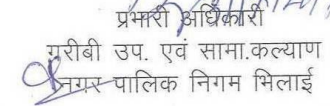 प्रभारी अधिकारी
गरीबी उप. एवं सामा.कल्याण
नगर पालिक निगम भिलाई